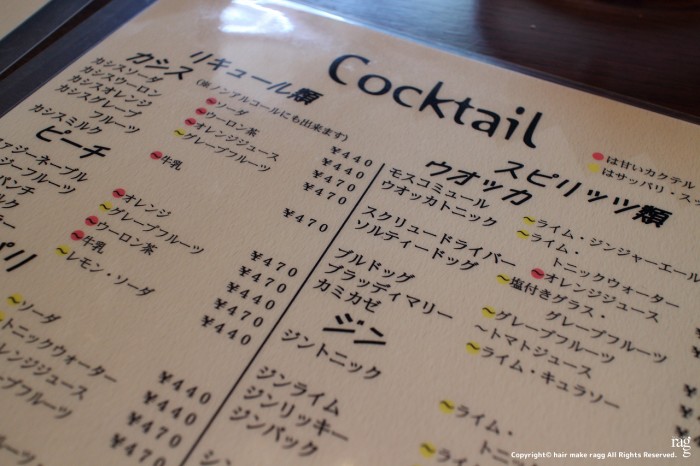 Cocktail
リキュール類
(※ノンアルコールにも出来ます)
カシス
カシスソーダ
～ソーダ
¥440
カシスウーロン
～ウーロン茶
¥440
カシスオレンジ
～オレンジジュース
¥470
カシスグレープフルーツ
～グレープフルーツ
¥470
カシスミルク
～牛乳
¥470
ピーチ
ァジーネーブル
～オレンジ
¥470
ジーフルーツ
～グレープフルーツ
¥470
パンチ
～ウーロン茶
¥440
ルク
～牛乳
¥470
～レモン・ソーダ
¥440
パリ
～ソーダ
¥440
～トニックウォーター
¥440
レンジジュース
¥470
グレープフルーツ
¥470
は甘いカクテル
はサッパリ・スッ
スピリッツ類
ウオッカ
モスコミュール
～ライム・ジンジャーエール
ウオッカトニック
～ライム・
トニックウォーター
スクリュードライバー
～オレンジジュース
ソルティードッグ
～塩付きグラス・
グレープフルーツ
ブルドッグ
～グレープフルーツ
ブラッディマリー
～トマトジュース
カミカゼ
～ライム・キュラソー
ジン
ジントニック
～ライム・
トニ
ジンライム
～ライム
ジンリッキー
ジンバック
ragg
Copyright© hair make ragg All Rights Reserved.